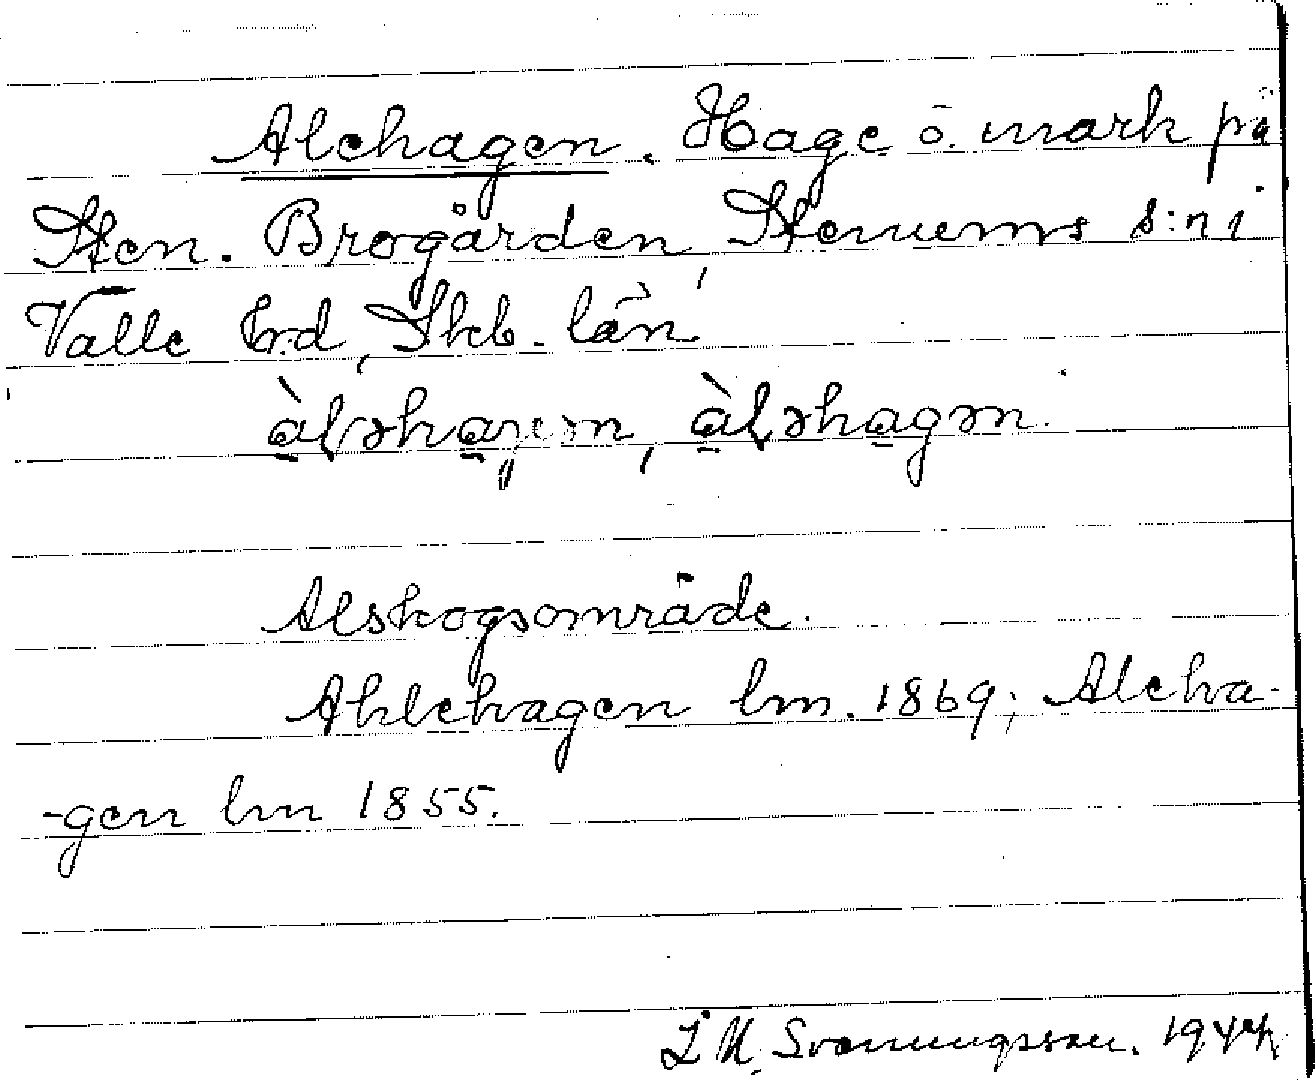 Alehagen. Hage o. mark på
Sten. Brogården, Stenums s:n i
Valle hrd, Skb. län.
àlǝhagǝn, àlǝhagǝn.
Alskogsområde.
Ahlehagen lm. 1869; Aleha-
-gen lm 1855.
Svanungsson. 1944